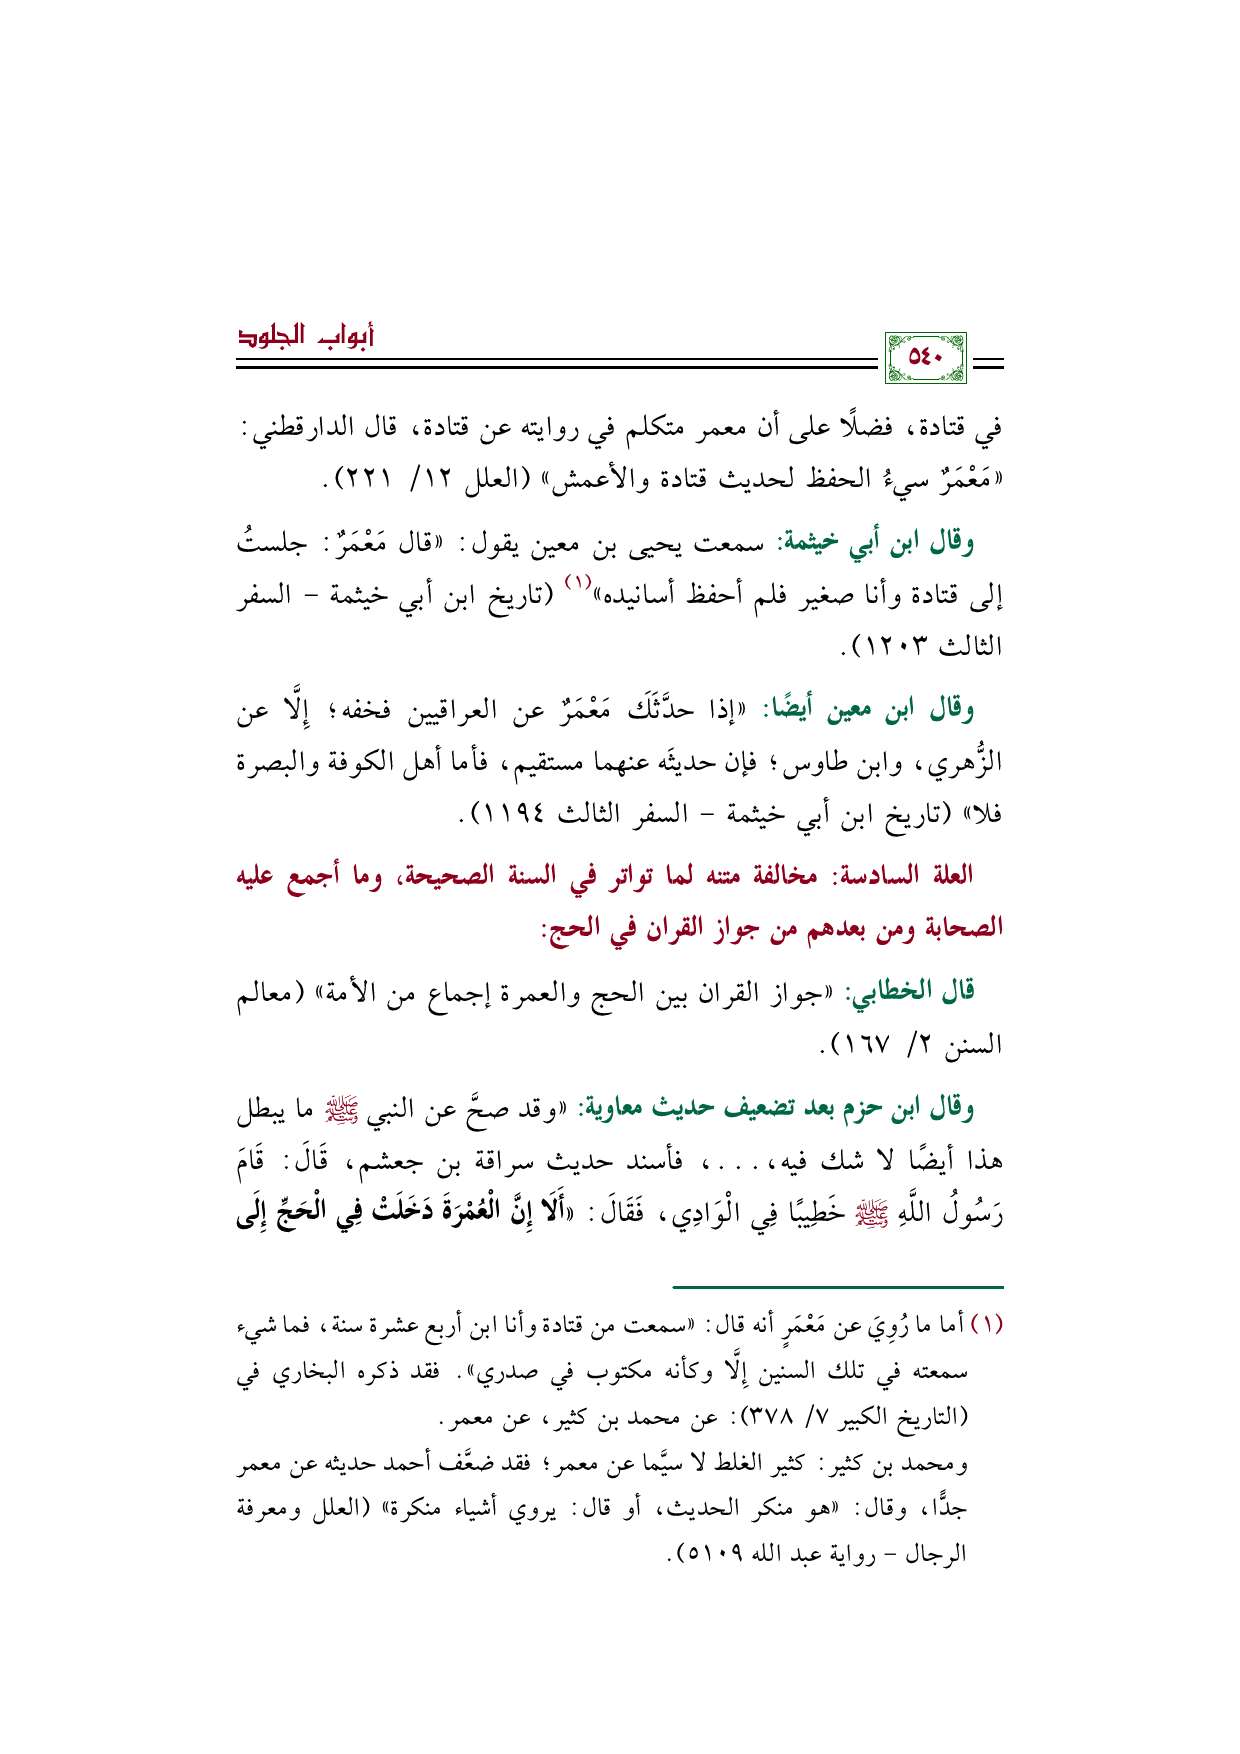 أبواب الجلود
٥٤٠
في قتادة، فضلًا على أن معمر متكلم في روايته عن قتادة، قال الدارقطني:
«مَعْمَرٌ سيءُ الحفظ لحديث قتادة والأعمش» (العلل ١٢/ ٢٢١).
وقال ابن أبي خيثمة: سمعت يحيى بن معين يقول: «قال مَعْمَرٌ: جلستُ
إلى قتادة وأنا صغير فلم أحفظ أسانيده»(١) (تاريخ ابن أبي خيثمة - السفر
الثالث ١٢٠٣).
وقال ابن معين أيضًا: «إذا حدَّثَكَ مَعْمَرٌ عن العراقيين فخفه؛ إِلَّا عن
الزُّهري، وابن طاوس؛ فإن حديثَه عنهما مستقيم، فأما أهل الكوفة والبصرة
فلا» (تاريخ ابن أبي خيثمة - السفر الثالث ١١٩٤).
العلة السادسة: مخالفة متنه لما تواتر في السنة الصحيحة، وما أجمع عليه
الصحابة ومن بعدهم من جواز القران في الحج:
قال الخطابي: «جواز القران بين الحج والعمرة إجماع من الأمة» (معالم
السنن ٢/ ١٦٧).
وقال ابن حزم بعد تضعيف حديث معاوية: «وقد صحَّ عن النبي ﷺ ما يبطل
هذا أيضًا لا شك فيه،...، فأسند حديث سراقة بن جعشم، قَالَ: قَامَ
رَسُولُ اللَّهِ ﷺ خَطِيبًا فِي الْوَادِي، فَقَالَ: «أَلَا إِنَّ الْعُمْرَةَ دَخَلَتْ فِي الْحَجِّ إِلَى
(١) أما ما رُوِيَ عن مَعْمَرٍ أنه قال: «سمعت من قتادة وأنا ابن أربع عشرة سنة، فما شيء
سمعته في تلك السنين إِلَّا وكأنه مكتوب في صدري». فقد ذكره البخاري في
(التاريخ الكبير ٧/ ٣٧٨): عن محمد بن كثير، عن معمر.
ومحمد بن كثير: كثير الغلط لا سيَّما عن معمر؛ فقد ضعَّف أحمد حديثه عن معمر
جدًّا، وقال: «هو منكر الحديث، أو قال: يروي أشياء منكرة» (العلل ومعرفة
الرجال - رواية عبد الله ٥١٠٩).